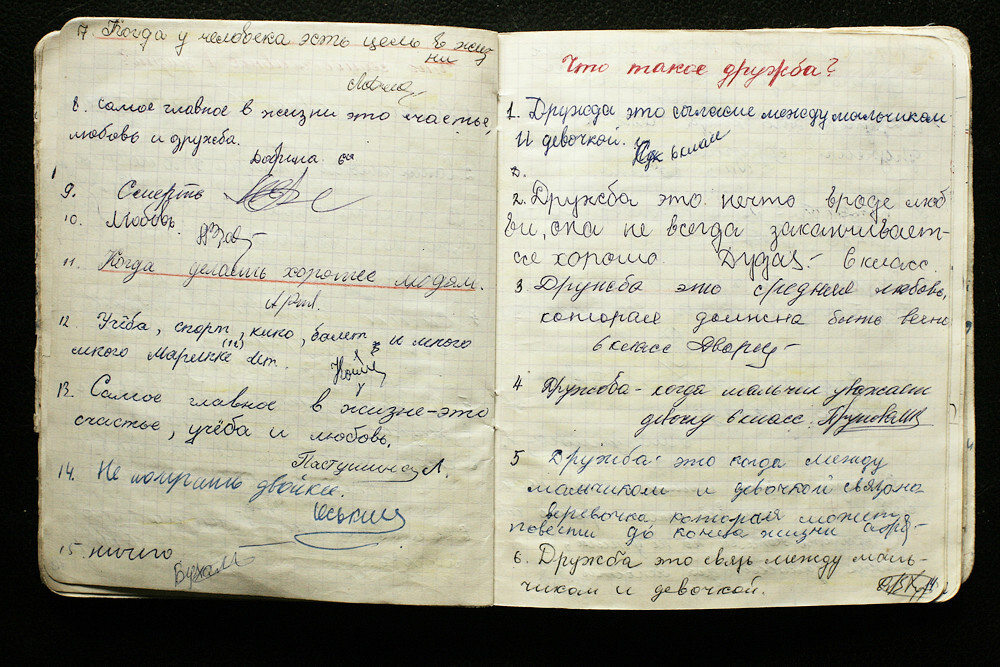 7. Когда у человека эсть цель в жиз
ни
8. Самое главное в жизни это счастье,
любовь и дружба.
Добрила
9. Смерть
10. Любовь.
11. Когда делаешь хорошее людям.
12. Учёба, спорт, кино, балет и много
много Маринке лет.
13. Самое главное в жизне-это
счастье, учёба и любовь.
Пастушина Л.
14. Не получать двойки.
15. ничего
Что такое дружба?
1. Дружда это согласие между мальчиком
и девочкой. 6 класс
2.
2. Дружба это нечто вроде люб
ви, она не всегда заканчивает-
ся хорошо. Дудаз- 6 класс.
3 Дружба это средняя любовь,
которая должна быть
6 класс
4 Дружба- когда мальчик уважает
девочку 6 класс.
5 Дружба- это когда между
мальчиком и девочкой связана
веревочка, которая может
повести до конца жизни
6. Дружба это связь между маль-
чиком и девочкой.